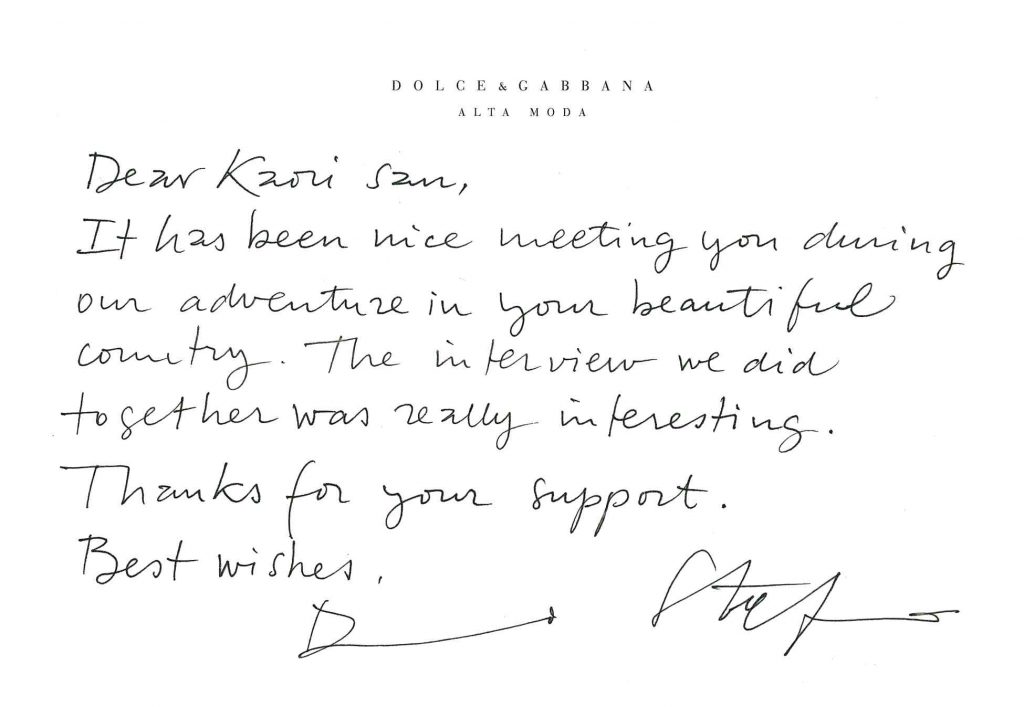 DOLCE & GABBANA
ALTA MODA
Dear Kaori san,
It has been nice meeting you during
our adventure in your beautiful
country. The interview we did
together was really interesting.
Thanks for your support.
Best wishes,